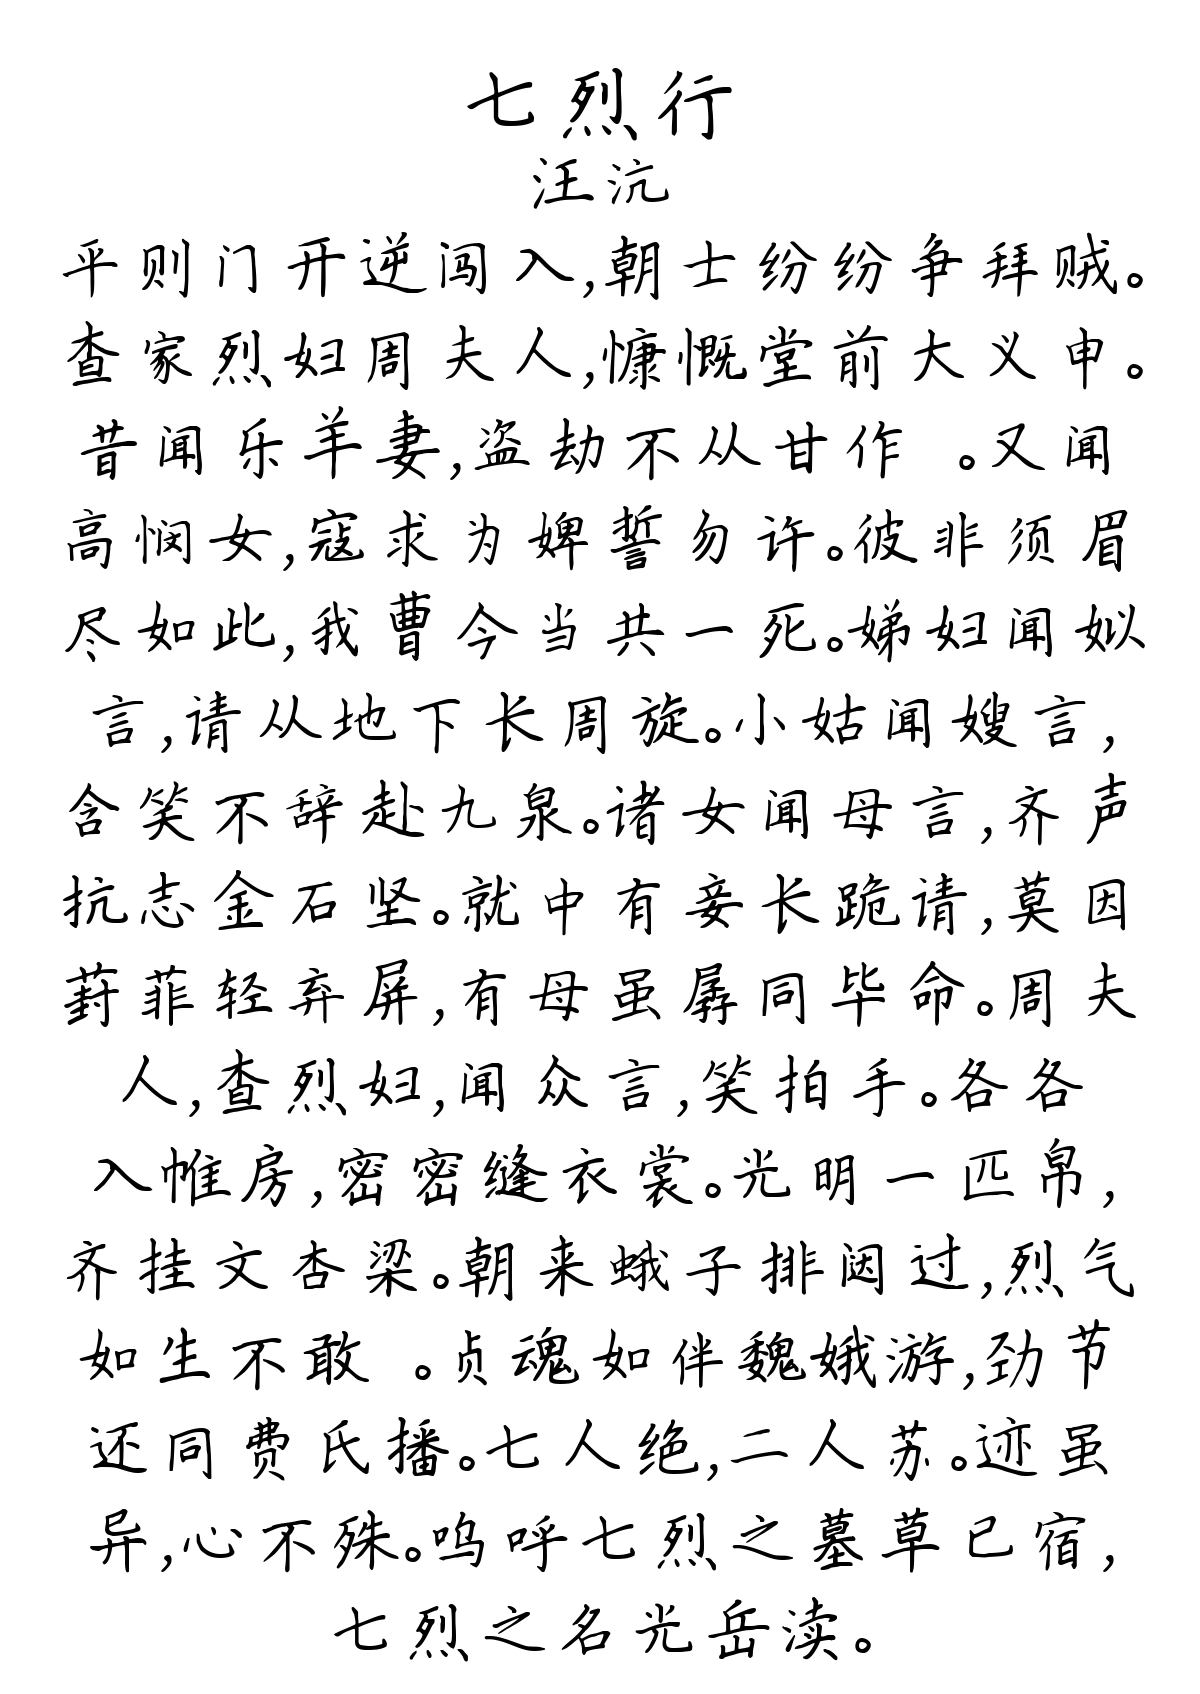 七烈行
汪沆
平则门开逆闯入,朝士纷纷争拜贼。
查家烈妇周夫人,慷慨堂前大义申。
昔闻乐羊妻,盗劫不从甘作 。又闻
高悯女,寇求为婢誓勿许。彼非须眉
尽如此,我曹今当共一死。娣妇闻姒
言,请从地下长周旋。小姑闻嫂言,
含笑不辞赴九泉。诸女闻母言,齐声
抗志金石坚。就中有妾长跪请,莫因
葑菲轻弃屏,有母虽孱同毕命。周夫
人,查烈妇,闻众言,笑拍手。各各
入帷房,密密缝衣裳。光明一匹帛,
齐挂文杏梁。朝来蛾子排闼过,烈气
如生不敢 。贞魂如伴魏娥游,劲节
还同费氏播。七人绝,二人苏。迹虽
异,心不殊。呜呼七烈之墓草已宿,
七烈之名光岳渎。